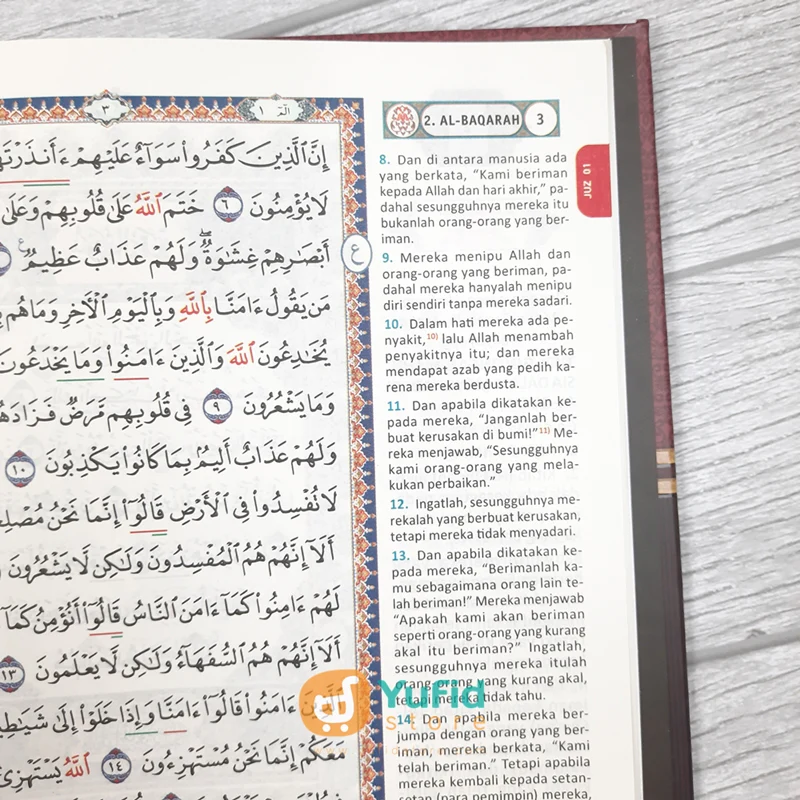 ٣
الٓمٓ ١
إِنَّ ٱلَّذِينَ كَفَرُوا۟ سَوَآءٌ عَلَيْهِمْ ءَأَنذَرْتَهُ
لَا يُؤْمِنُونَ ٦ خَتَمَ ٱللَّهُ عَلَىٰ قُلُوبِهِمْ وَعَلَىٰ
أَبْصَٰرِهِمْ غِشَٰوَةٌ ۖ وَلَهُمْ عَذَابٌ عَظِيمٌ
ع
مَن يَقُولُ ءَامَنَّا بِٱللَّهِ وَبِٱلْيَوْمِ ٱلْءَاخِرِ وَمَا هُم
يُخَٰدِعُونَ ٱللَّهَ وَٱلَّذِينَ ءَامَنُوا۟ وَمَا يَخْدَعُونَ
وَمَا يَشْعُرُونَ ٩ فِى قُلُوبِهِم مَّرَضٌ فَزَادَهُ
وَلَهُمْ عَذَابٌ أَلِيمٌۢ بِمَا كَانُوا۟ يَكْذِبُونَ ١٠
لَا تُفْسِدُوا۟ فِى ٱلْأَرْضِ قَالُوٓا۟ إِنَّمَا نَحْنُ مُصْلِحُ
أَلَآ إِنَّهُمْ هُمُ ٱلْمُفْسِدُونَ وَلَٰكِن لَّا يَشْعُرُونَ
لَهُمْ ءَامِنُوا۟ كَمَآ ءَامَنَ ٱلنَّاسُ قَالُوٓا۟ أَنُؤْمِنُ كَمَآ
أَلَآ إِنَّهُمْ هُمُ ٱلسُّفَهَآءُ وَلَٰكِن لَّا يَعْلَمُونَ ١٣
ٱلَّذِينَ ءَامَنُوا۟ قَالُوٓا۟ ءَامَنَّا وَإِذَا خَلَوْا۟ إِلَىٰ شَيَٰطِي
مَعَكُمْ إِنَّمَا نَحْنُ مُسْتَهْزِءُونَ ١٤ ٱللَّهُ يَسْتَهْزِئُ
2. AL-BAQARAH 3
JUZ 01
8. Dan di antara manusia ada
yang berkata, “Kami beriman
kepada Allah dan hari akhir,” pa-
dahal sesungguhnya mereka itu
bukanlah orang-orang yang ber-
iman.
9. Mereka menipu Allah dan
orang-orang yang beriman, pa-
dahal mereka hanyalah menipu
diri sendiri tanpa mereka sadari.
10. Dalam hati mereka ada pe-
nyakit,10) lalu Allah menambah
penyakitnya itu; dan mereka
mendapat azab yang pedih ka-
rena mereka berdusta.
11. Dan apabila dikatakan ke-
pada mereka, “Janganlah ber-
buat kerusakan di bumi!”11) Me-
reka menjawab, “Sesungguhnya
kami orang-orang yang mela-
kukan perbaikan.”
12. Ingatlah, sesungguhnya me-
rekalah yang berbuat kerusakan,
tetapi mereka tidak menyadari.
13. Dan apabila dikatakan ke-
pada mereka, “Berimanlah ka-
mu sebagaimana orang lain te-
lah beriman!” Mereka menjawab
“Apakah kami akan beriman
seperti orang-orang yang kurang
akal itu beriman?” Ingatlah,
sesungguhnya mereka itulah
orang-orang yang kurang akal,
tetapi mereka tidak tahu.
14. Dan apabila mereka ber-
jumpa dengan orang yang ber-
iman, mereka berkata, “Kami
telah beriman.” Tetapi apabila
mereka kembali kepada setan-
setan (para pemimpin) mereka,
YuFid
store